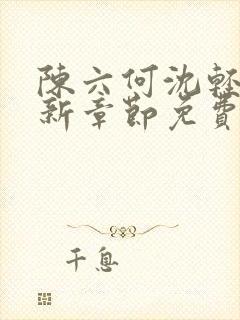 陳六何沈輕
新章節免費
千息